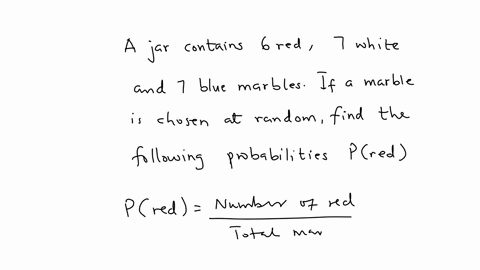 A jar contains 6 red, 7 white
and 7 blue marbles. If a marble
is chosen at random, find the
following probabilities P(red)
P(red) = Number of red
Total mar